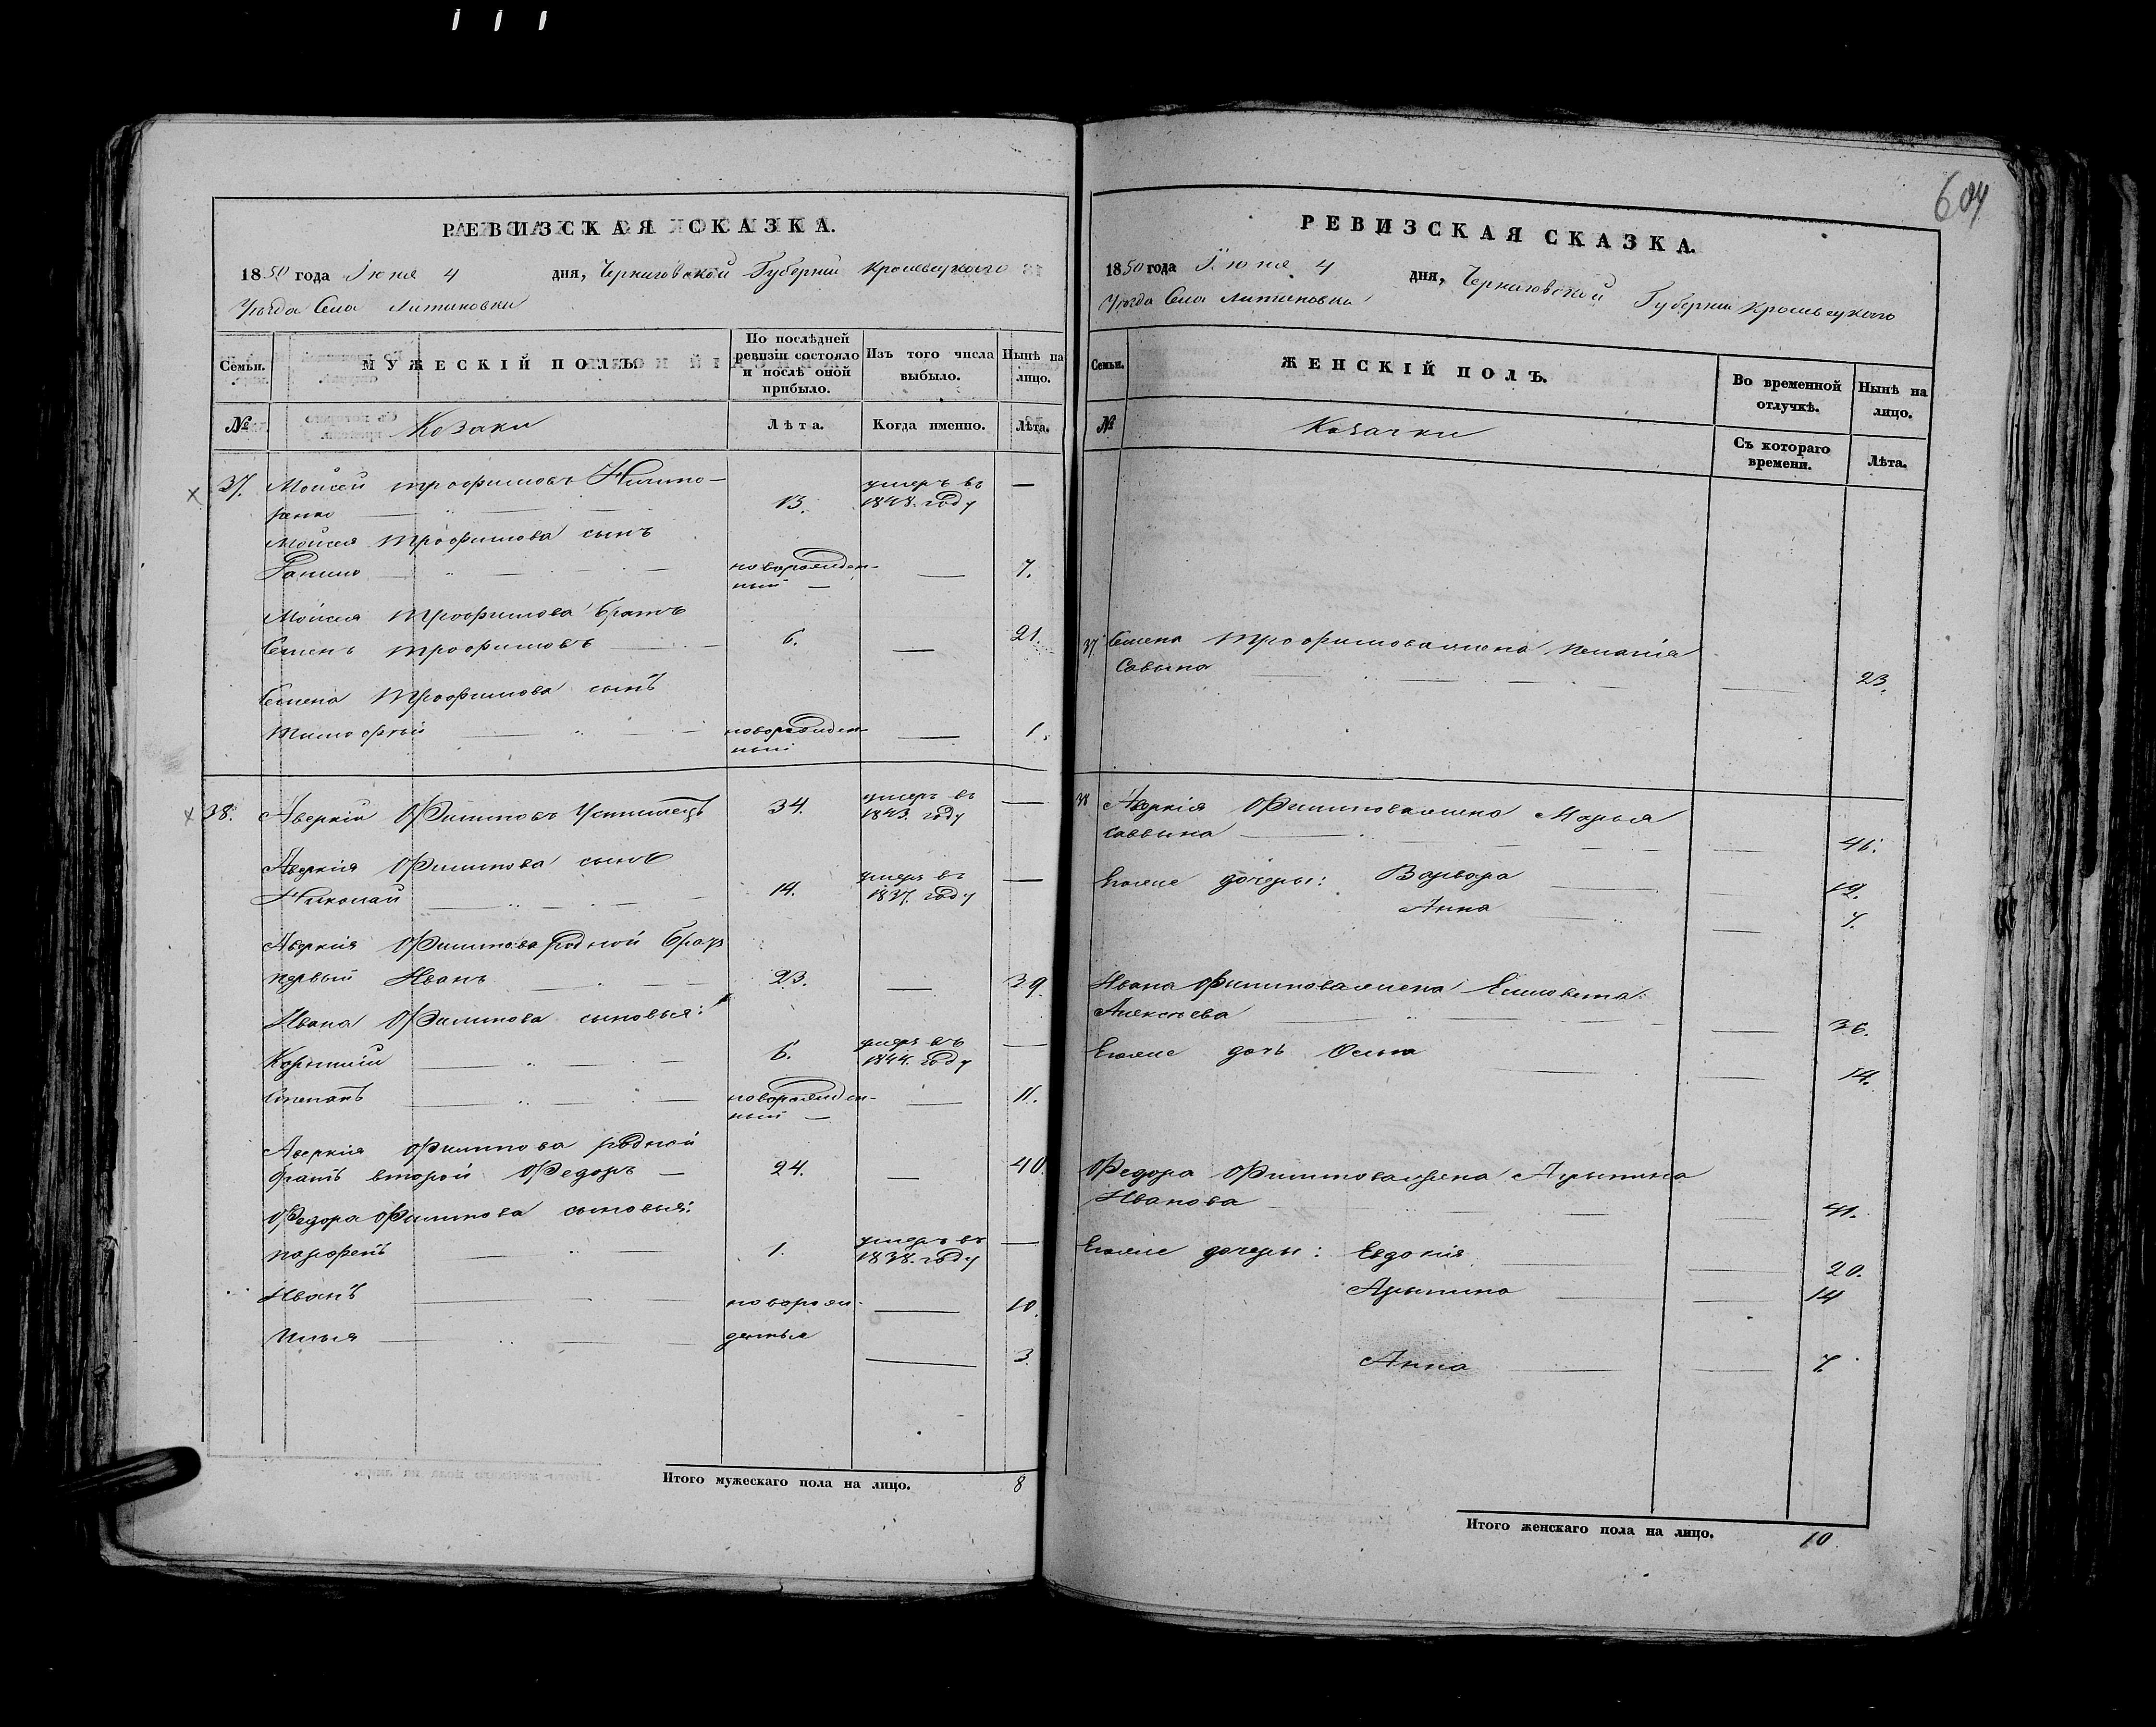 604
РЕВИЗСКАЯ СКАЗКА.
1850 года Июня 4 дня, Черниговской Губернии Кролевецкого
Уѣзда Села Литвиновки
Семьи.
МУЖЕСКІЙ ПОЛЪ.
По послѣдней ревизіи состояло и послѣ оной прибыло.
Изъ того числа выбыло.
Нынѣ на лицо.
№
Козаки
Лѣта.
Когда именно.
Лѣта.
37. Мойсей Трофимовъ
13. умеръ въ 1848. году —
Мойсея Трофимова сынъ
новорожден-
ный — — 7.
Мойсея Трофимова братъ
Семенъ Трофимовъ 6. — 21.
Семена Трофимова сынъ
Тимофей новорожден-
ный — 1.
38. Аверкій Филиповъ 34. умеръ въ 1843. году —
Аверкія Филипова сынъ
Николай 14. умеръ въ 1837. году —
Аверкія Филипова родной братъ
первый Иванъ 23. — 39.
Ивана Филипова сыновья:
6. умеръ въ 1844. году —
Степанъ новорожден-
ный — — 11.
Аверкія Филипова родной
братъ второй Федоръ — 24. — 40.
Федора Филипова сыновья:
Парфенъ 1. умеръ въ 1838. году —
Иванъ новорож- — 10.
Илья денные — 3.
Итого мужескаго пола на лицо. 8
РЕВИЗСКАЯ СКАЗКА.
1850 года Июня 4 дня, Черниговской Губернии Кролевецкого
Уѣзда Села Литвиновки
Семьи.
ЖЕНСКІЙ ПОЛЪ.
Во временной отлучкѣ.
Нынѣ на лицо.
№
Козачки
Съ котораго времени.
Лѣта.
37. Семена Трофимова жена
Савына — 23.
38 Аверкія Филипова жена Марья
Саввина — 46.
Егоже дочеры: Варвара — 19.
Анна — 7.
Ивана Филипова жена Елисовета
Алексѣева — 36.
Егоже дочь — 14.
Федора Филипова жена Арынина
Иванова — 41.
Егоже дочеры: Евдокія — 20.
Арынина — 14
Анна — 7.
Итого женскаго пола на лицо. 10